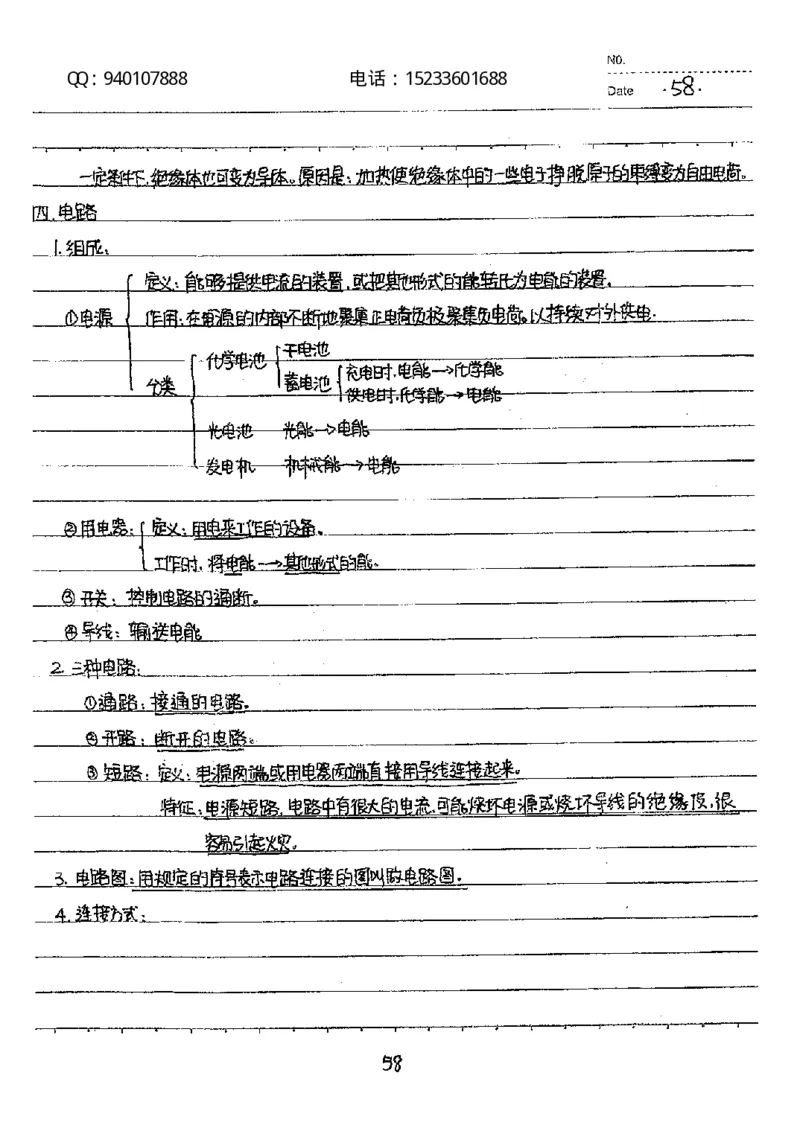 QQ：940107888 电话：15233601688
NO.
Date ·58·
一定条件下,绝缘体也可变为导体。原因是：加热使绝缘体中的一些电子挣脱原子的束缚变为自由电荷。
四.电路
1.组成：
定义：能够提供电流的装置,或把其他形式的能转化为电能的装置。
①电源 作用：在电源的内部不断地聚集正电荷负极聚集负电荷。以持续对外供电.
化学电池 干电池
分类 蓄电池 充电时,电能→化学能
供电时,化学能→电能
光电池 光能→电能
发电机 机械能→电能
②用电器： 定义：用电来工作的设备。
工作时,将电能→其他形式的能。
③开关：控制电路的通断。
④导线：输送电能
2.三种电路：
①通路：接通的电路。
②开路：断开的电路。
③短路：定义：电源两端或用电器两端直接用导线连接起来。
特征：电源短路,电路中有很大的电流,可能烧坏电源或烧坏导线的绝缘皮,很
容易引起火灾。
3.电路图：用规定的符号表示电路连接的图叫做电路图.
4.连接方式：
58